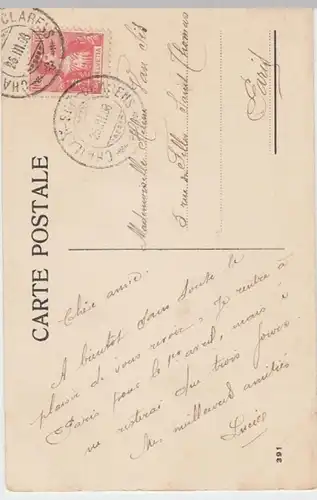 CLARENS
26.III.08
CHAILLY-SUR-CLARENS
26.III.08
CARTE POSTALE
Mademoiselle
5 rue des Filles Saint Thomas
Paris
Chère amie.
A bientôt sans doute le
plaisir de vous revoir. Je rentre à
Paris pour le 1er avril, mais n'
y resterai que trois jours.
Mes meilleures amitiés
Lucien
391